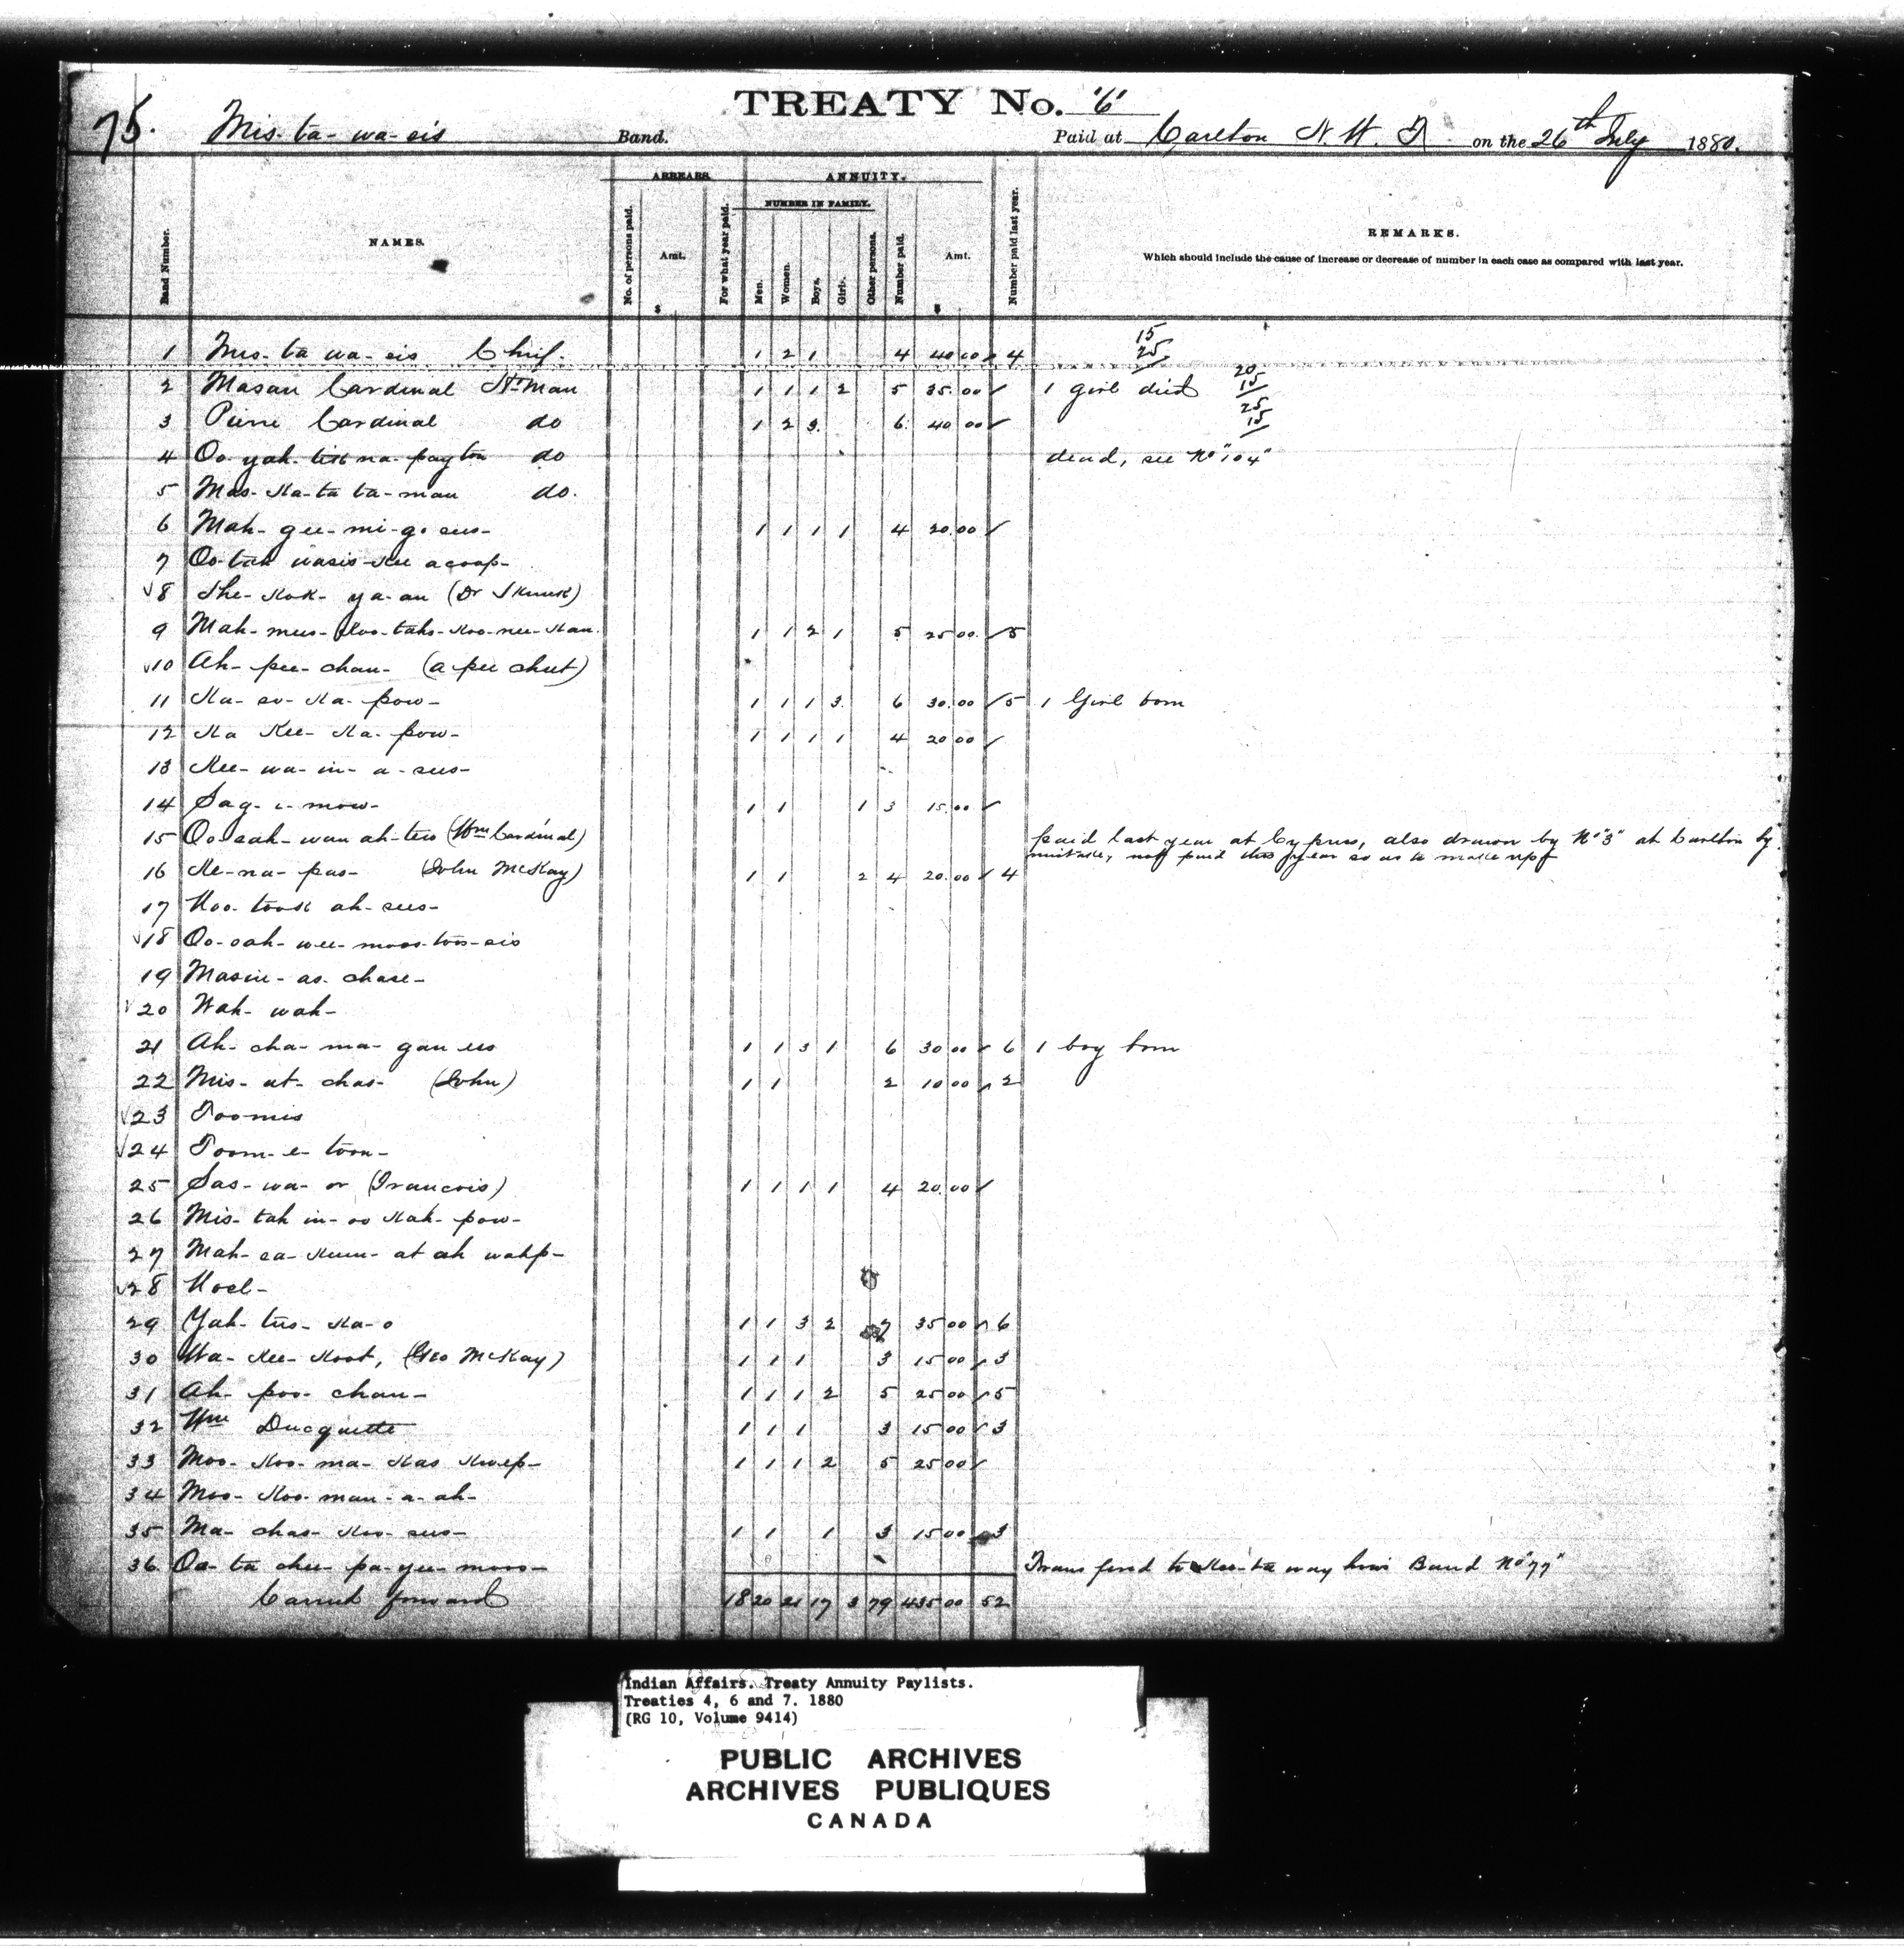 75.
TREATY No. "6"
Mis-ta-wa-sis Band. Paid at Carlton N. W. T. on the 26th July 1880.
ARREARS. ANNUITY.
NUMBER IN FAMILY.
Band Number. NAMES. No. of persons paid. Amt. $ For what year paid. Men. Women. Boys. Girls. Other persons. Number paid. Amt. $ Number paid last year. REMARKS.
Which should include the cause of increase or decrease of number in each case as compared with last year.
15
1 Mis-ta wa-sis Chief. 1 2 1 4 40 00 4 25
20
2 Masan Cardinal Hd Man 1 1 1 2 5 35.00 1 girl died 15
25
3 Pierre Cardinal do 1 2 3. 6. 40 00 15
4 Oo-yah-tisk na-payton do dead, see No "104"
5 Mas-Ka-ta ta-man do.
6 Mah-gee-mi-go sus- 1 1 1 1 4 20.00
7 Oo-tah wasis-Kee acoop-
8 She-Kok-ya-an (Dr Skunk)
9 Mah-mus-Koo-tahs-Koo-nee-Kan. 1 1 2 1 5 25 00. 5
10 Ah-pee-chan- (a pee chut)
11 Ka-so-Ka-pow- 1 1 1 3. 6 30.00 5 1 Girl born
12 Ka Kee-Ka-pow- 1 1 1 1 4 20 00
13 Kee-wa-in-a-sus-
14 Sag-i-mow- 1 1 1 3 15.00
15 Oo-sah-wan ah-tew (Wm Cardinal) paid last year at Cypress, also drawn by No "3" at Carlton by
mistake, not paid this year so as to make up
16 Ke-na-pas- (John McKay) 1 1 2 4 20.00 4
17 Noo-took ah-sus-
18 Oo-sah-wee-moos-toos-sis
19 Masin-as-chase-
20 Wah-wah-
21 Ah-cha-ma-gan ess 1 1 3 1 6 30 00 6 1 boy born
22 Mis-at-chas- (John) 1 1 2 10 00 2
23 Toomis
24 Toom-e-toon-
25 Sas-wa-or (Francois) 1 1 1 1 4 20.00
26 Mis-tah in-oo Kah-pow-
27 Mah-ca-Kum-at ah wahp-
28 Noel-
29 Yah-tus-Ka-o 1 1 3 2 7 35 00 6
30 Wa-Kee-Koot, (Geo McKay) 1 1 1 3 15 00 3
31 Ah-poo-chan- 1 1 1 2 5 25 00 5
32 Wm Ducquette 1 1 1 3 15 00 3
33 Moo-Koo-ma-Kas Kwep- 1 1 1 2 5 25 00
34 Moo-Koo-man-a-ah-
35 Ma-chas-Koo-sus- 1 1 1 3 15 00 3
36. Oo-ta chee-pa-yee-moos- Transferred to Band No "77"
Carried forward 18 20 21 17 3 79 435 00 52
Indian Affairs. Treaty Annuity Paylists.
Treaties 4, 6 and 7. 1880
(RG 10, Volume 9414)
PUBLIC ARCHIVES
ARCHIVES PUBLIQUES
CANADA